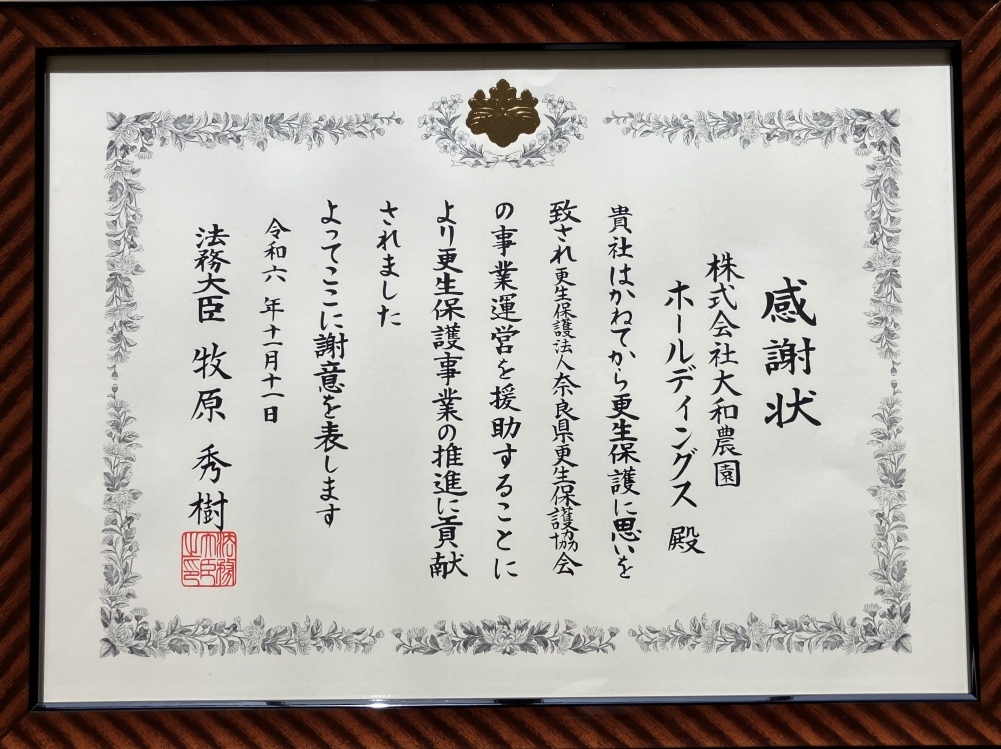 感謝状
株式会社大和農園
ホールディングス 殿
貴社はかねてから更生保護に思いを
致され更生保護法人奈良県更生保護協会
の事業運営を援助することに
より更生保護事業の推進に貢献
されました
よってここに謝意を表します
令和六年十一月十一日
法務大臣 牧原秀樹
法務大臣之印